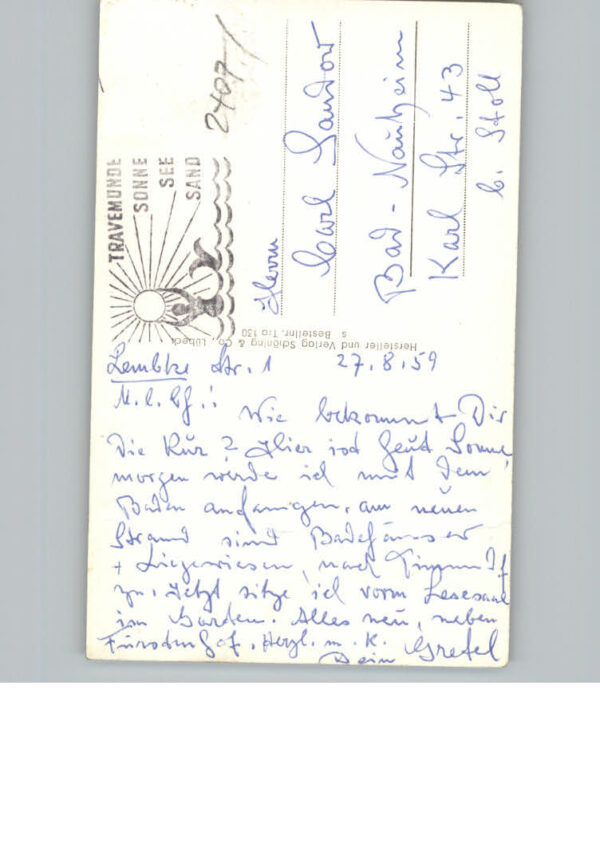 TRAVEMÜNDE
SONNE
SEE
SAND
2407/
Herrn
Carl Sandow
Bad-Nauheim
Karl Str. 43
b. Stoll
Hersteller und Verlag Schöning & Co., Lübeck
s Bestellnr. Tra 130
Lembke Str. 1 27.8.59
M. l. Cf.! Wie bekommt Dir
die Kur? Hier ist heut Sonne,
morgen werde ich mit dem
Baden anfangen, am neuen
Strand sind Badehäuser
+ Liegewiesen, nach Timmendf
zu. Jetzt sitze ich vorm Lesesaal
im Garten. Alles neu, neben
Fürstenhof. Herzl. m. K.
Dein Gretel